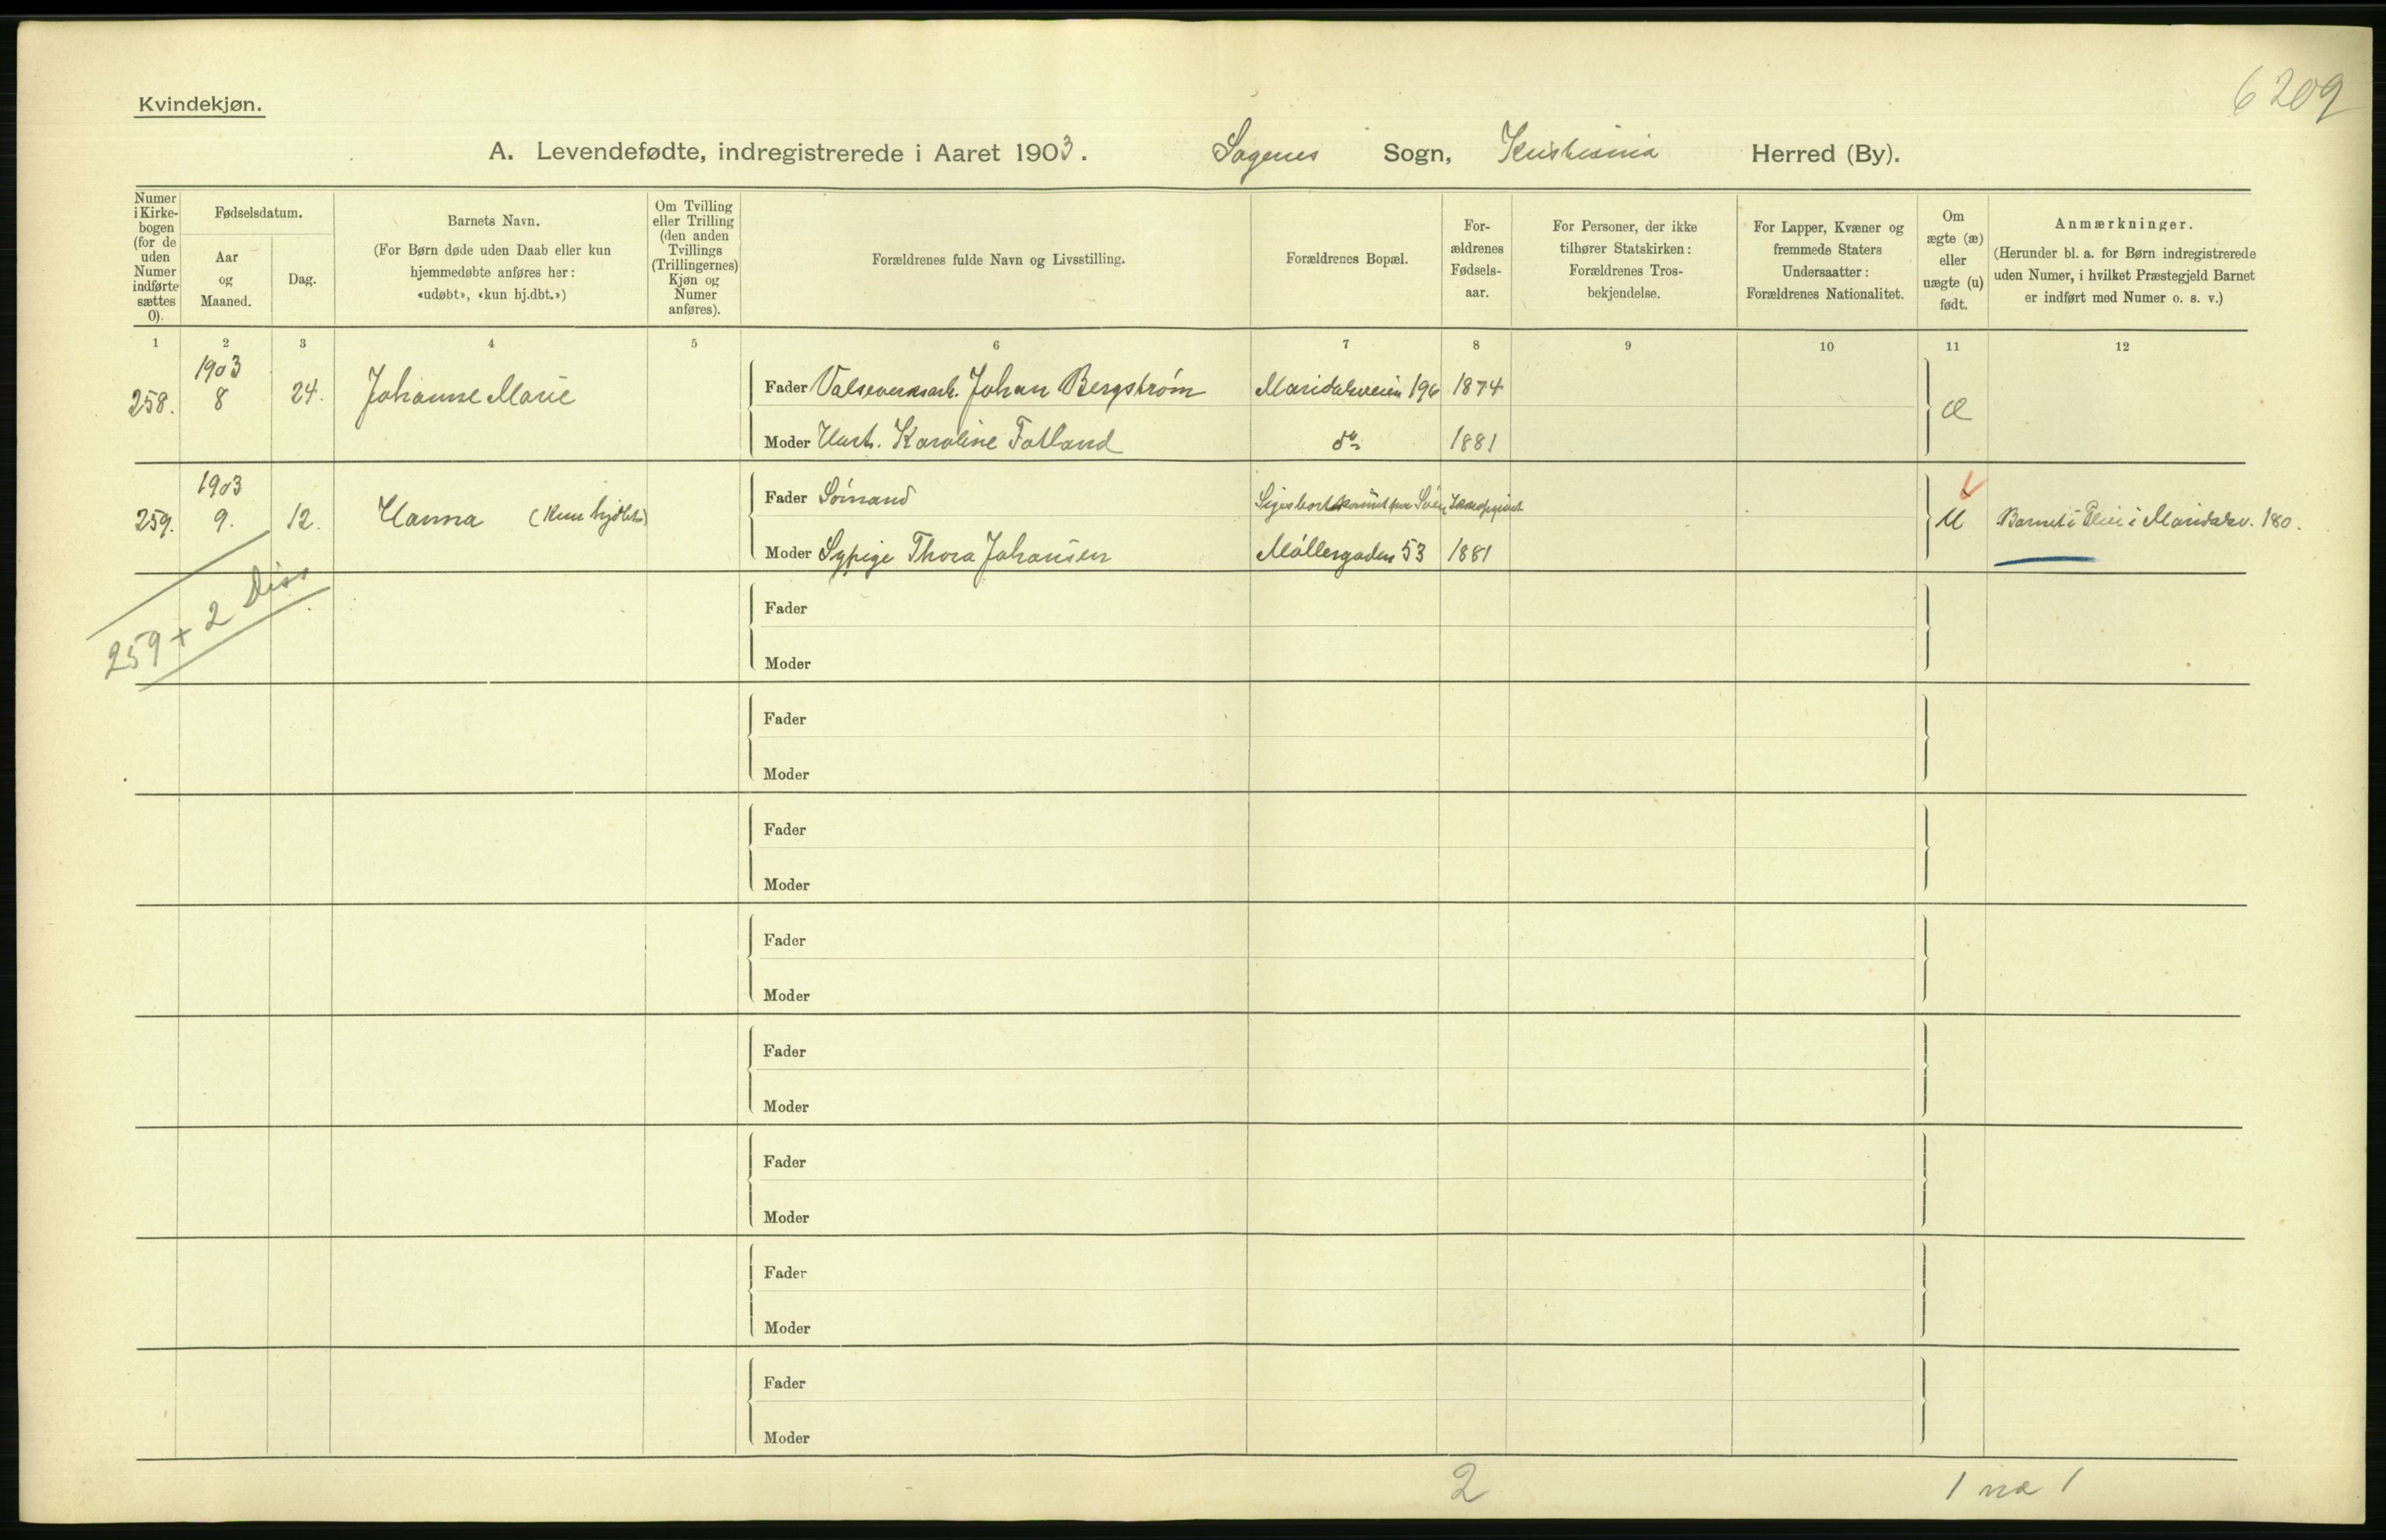 6209
Kvindekjøn.
A. Levendefødte, indregistrerede i Aaret 1903. Sagenes Sogn, Kristiania Herred (By).
Numer i Kirke-bogen (for de uden Numer indførte sættes 0).
Fødselsdatum.
Aar og Maaned.
Dag.
Barnets Navn.
(For Børn døde uden Daab eller kun
hjemmedøbte anføres her:
«udøbt», «kun hj.dbt.»)
Om Tvilling
eller Trilling
(den anden
Tvillings
(Trillingernes)
Kjøn og
Numer
anføres).
Forældrenes fulde Navn og Livsstilling.
Forældrenes Bopæl.
For-
ældrenes
Fødsels-
aar.
For Personer, der ikke
tilhører Statskirken:
Forældrenes Tros-
bekjendelse.
For Lapper, Kvæner og
fremmede Staters
Undersaatter:
Forældrenes Nationalitet.
Om
ægte (æ)
eller
uægte (u)
født.
Anmærkninger.
(Herunder bl. a. for Børn indregistrerede
uden Numer, i hvilket Præstegjeld Barnet
er indført med Numer o. s. v.)
1 2 3 4 5 6 7 8 9 10 11 12
1903
258. 8 24. Johanne Marie Fader Valseverksarb. Johan Bergstrøm Maridalsveien 196 1874 Æ
Moder Hust. Karoline Fatland do 1881
1903
259. 9. 12. Hanna (Kun hjdbt) Fader Sömand
U Barnet i Pleie i Maridalsv. 180.
Moder Sypige Thora Johansen Möllergaden 53 1881
259 + 2 Diss
Fader
Moder
Fader
Moder
Fader
Moder
Fader
Moder
Fader
Moder
Fader
Moder
Fader
Moder
Fader
Moder
2 1 na 1